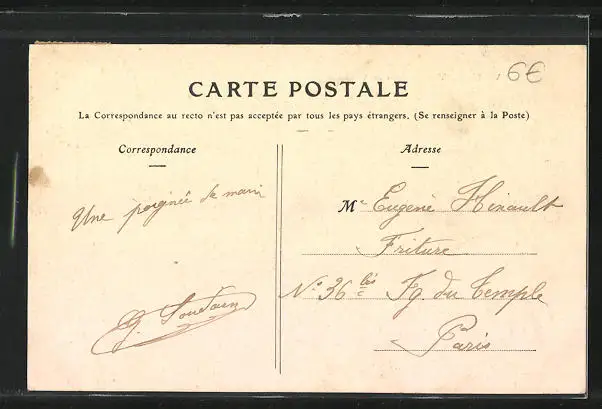 6€
CARTE POSTALE
La Correspondance au recto n'est pas acceptée par tous les pays étrangers. (Se renseigner à la Poste)
Correspondance
Adresse
Une poignée de main
Mr Eugène Hinault
Friture
No 36 bis Fg. du Temple
Paris